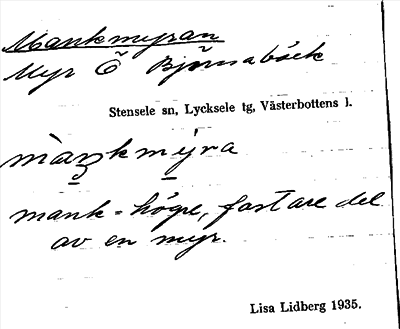 Mankmyran
Myr Ö Björnabäck
Stensele sn, Lycksele tg, Västerbottens l.
màŋkmyra
mank = högre, fastare del
av en myr.
Lisa Lidberg 1935.